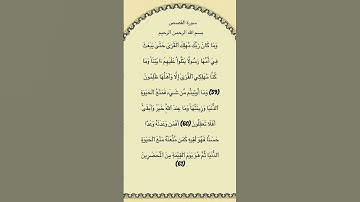 سورة القصص
بسم الله الرحمن الرحيم
وَمَا كَانَ رَبُّكَ مُهْلِكَ الْقُرَىٰ حَتَّىٰ يَبْعَثَ
فِي أُمِّهَا رَسُولًا يَتْلُو عَلَيْهِمْ ءَايَٰتِنَا وَمَا
كُنَّا مُهْلِكِي الْقُرَىٰ إِلَّا وَأَهْلُهَا ظَٰلِمُونَ
(59) وَمَا أُوتِيتُم مِّن شَيْءٍ فَمَتَٰعُ الْحَيَوٰةِ
الدُّنْيَا وَزِينَتُهَا وَمَا عِندَ اللَّهِ خَيْرٌ وَأَبْقَىٰ
أَفَلَا تَعْقِلُونَ (60) أَفَمَن وَعَدْنَٰهُ وَعْدًا
حَسَنًا فَهُوَ لَٰقِيهِ كَمَن مَّتَّعْنَٰهُ مَتَٰعَ الْحَيَوٰةِ
الدُّنْيَا ثُمَّ هُوَ يَوْمَ الْقِيَٰمَةِ مِنَ الْمُحْضَرِينَ
(61)